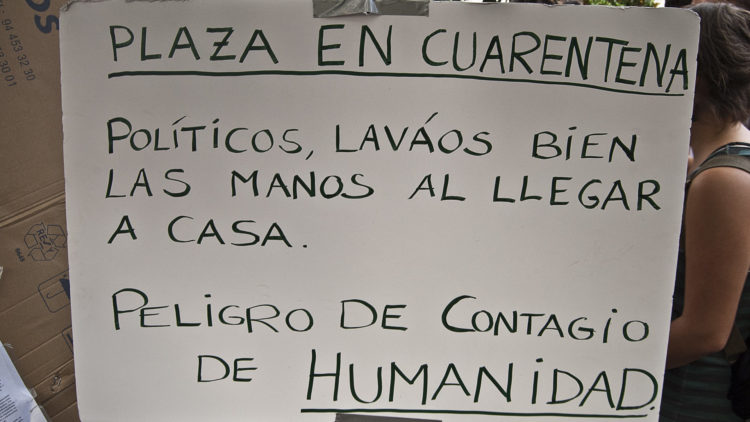 PLAZA EN CUARENTENA
POLÍTICOS, LAVÁOS BIEN
LAS MANOS AL LLEGAR
A CASA.
PELIGRO DE CONTAGIO
DE HUMANIDAD.
OS
94 453 32 30